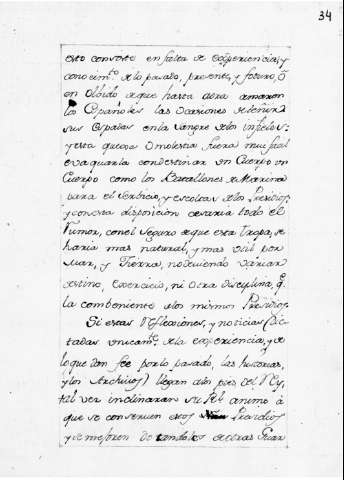 34
esto consiste en falta de experiencia, y
conocim.to de lo pasado, presente, y futuro, ó
en olbido de que hasta aora amaron
los Españoles las Ocasiones de teñir
sus Espadas en la sangre de los infieles:
y esta quexa ó molestia fuera mui facil
evaquarla con destinar un Cuerpo ó un
Cuerpo como los Batallones de Marina
para el servicio, y escoltas de los Presidios,
y con esta disposicion cesaria todo el
Rumor, con el seguro de que esta tropa, se
haria mas natural, y mas util por
Mar, y Tierra, no deviendo variar
destino, Exercicio, ni otra disciplina, q.e
la combeniente a los mismos Presidios.
Si estas Reflecciones, y noticias (Dic-
tadas unicam.te de la experiencia, y de
lo que dan fee por lo pasado, las historias,
y los Archivos) llegan a los pies del Rey,
tal vez inclinaran su R.l animo à
que se conserven esos Presidios
y se mejoren dotandolos de otras Guar